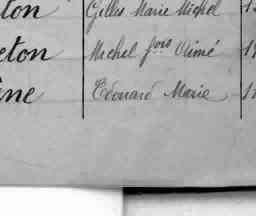 ton Gilles Marie Michel 1
eton Michel fois Aimé 1
ine Edouard Marie 1